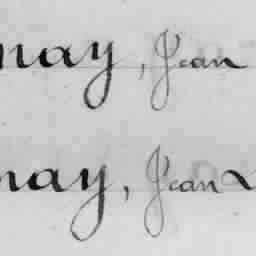 nay, Jean
nay, Jean